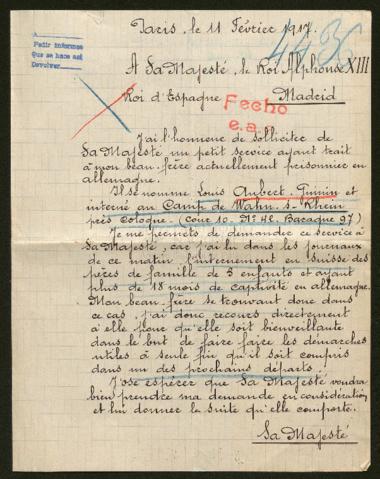 Paris, le 11 Février 1917.
4436
A
Pedir informes
Que se haga así
Devolver
A Sa Majesté, le Roi Alphonse XIII
Roi d'Espagne Madrid
Fecho
e.a.
J'ai l'honneur de sollicitre de
Sa Majesté un petit service ayant trait
à mon beau-frère actuellement prisonnier en
allemagne.
Il se nomme Louis Aubert- et
interné au Camp de Wahn-s-Rhein
près Cologne. (Cour 10. Nº 42. Baraque 97)
Je me permets de demander ce service à
Sa Majesté, car j'ai lu dans les journaux
de ce matin l'internement en Suisse des
pères de famille de 3 enfants et ayant
plus de 18 mois de captivité en allemagne.
Mon beau-frère se trouvant donc dans
ce cas, j'ai donc recours directement
à elle pour qu'elle soit bienveillante
dans le but de faire faire les démarches
utiles à seule fin qu'il soit compris
dans un des prochains départs.
J'ose espérer que Sa Majesté voudra
bien prendre ma demande en considération
et lui donner la suite qu'elle comporte.
Sa Majesté